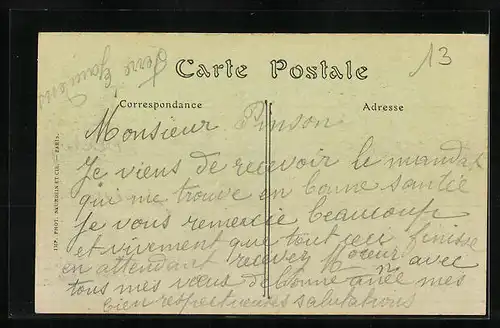 13
Carte Postale
Correspondance
Adresse
Monsieur Pinson
Je viens de recevoir le mandat
qui me trouve en bonne santie
Je vous remercie beaucoup
et vivement que tout ceci finisse
en attendant recevez Mr avec
tous mes vœux de bonne année mes
bien respectueuses salutations
IMP. PHOT. NEURDEIN ET CIE. — PARIS.